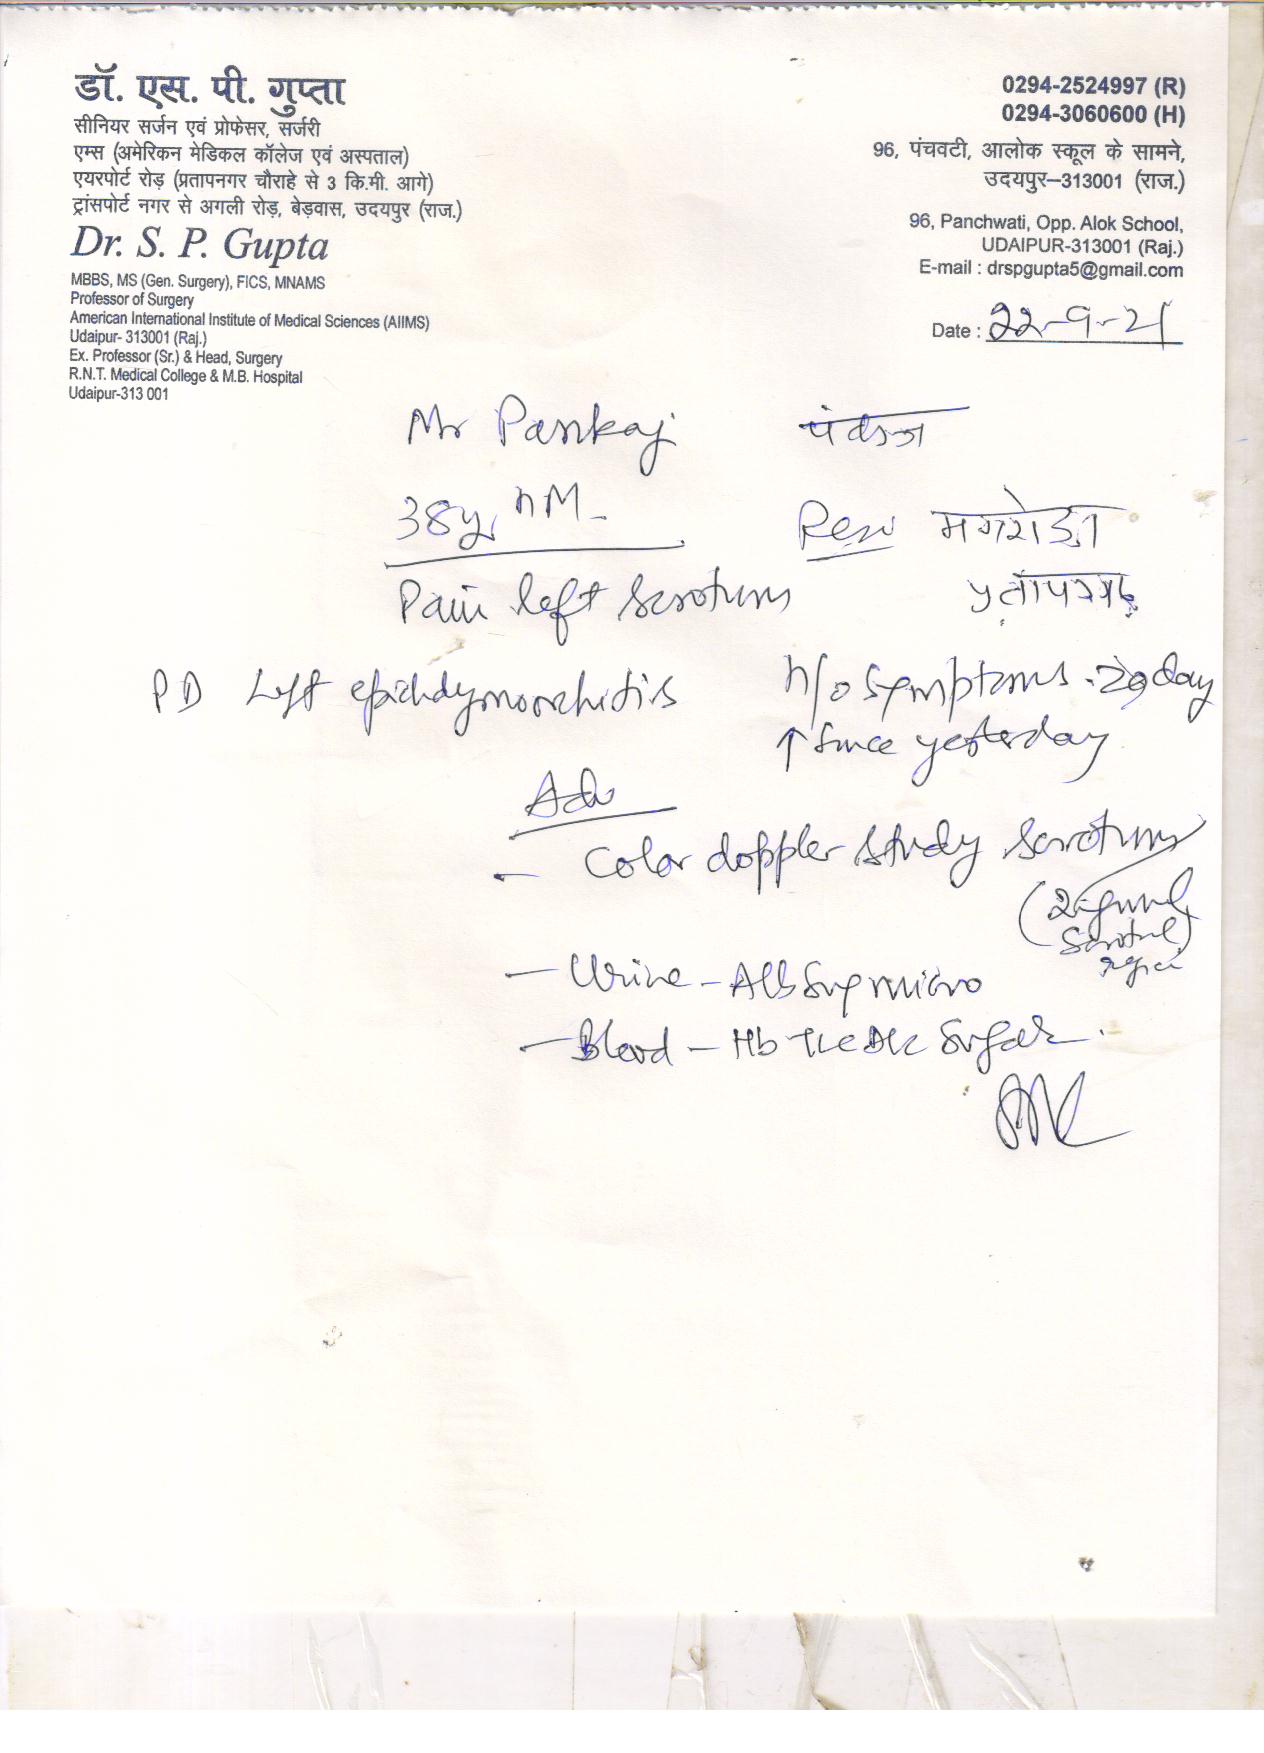 डॉ. एस. पी. गुप्ता
सीनियर सर्जन एवं प्रोफेसर, सर्जरी
एम्स (अमेरिकन मेडिकल कॉलेज एवं अस्पताल)
एयरपोर्ट रोड़ (प्रतापनगर चौराहे से 3 कि.मी. आगे)
ट्रांसपोर्ट नगर से अगली रोड़, बेड़वास, उदयपुर (राज.)
Dr. S. P. Gupta
MBBS, MS (Gen. Surgery), FICS, MNAMS
Professor of Surgery
American International Institute of Medical Sciences (AIIMS)
Udaipur- 313001 (Raj.)
Ex. Professor (Sr.) & Head, Surgery
R.N.T. Medical College & M.B. Hospital
Udaipur-313 001
0294-2524997 (R)
0294-3060600 (H)
96, पंचवटी, आलोक स्कूल के सामने,
उदयपुर–313001 (राज.)
96, Panchwati, Opp. Alok School,
UDAIPUR-313001 (Raj.)
E-mail : drspgupta5@gmail.com
Date : 22-9-21
Mr Pankaj पंकज
38y M
मगरोडा
Pain left Scrotum प्रतापगढ़
PD Left epididymoorchitis h/o Symptoms day
↑ Since yesterday
Adv
- Color doppler study Scrotum
Scrotal
- Urine - Alb Sug micro
- Blood - Hb TLC DLC Sugar